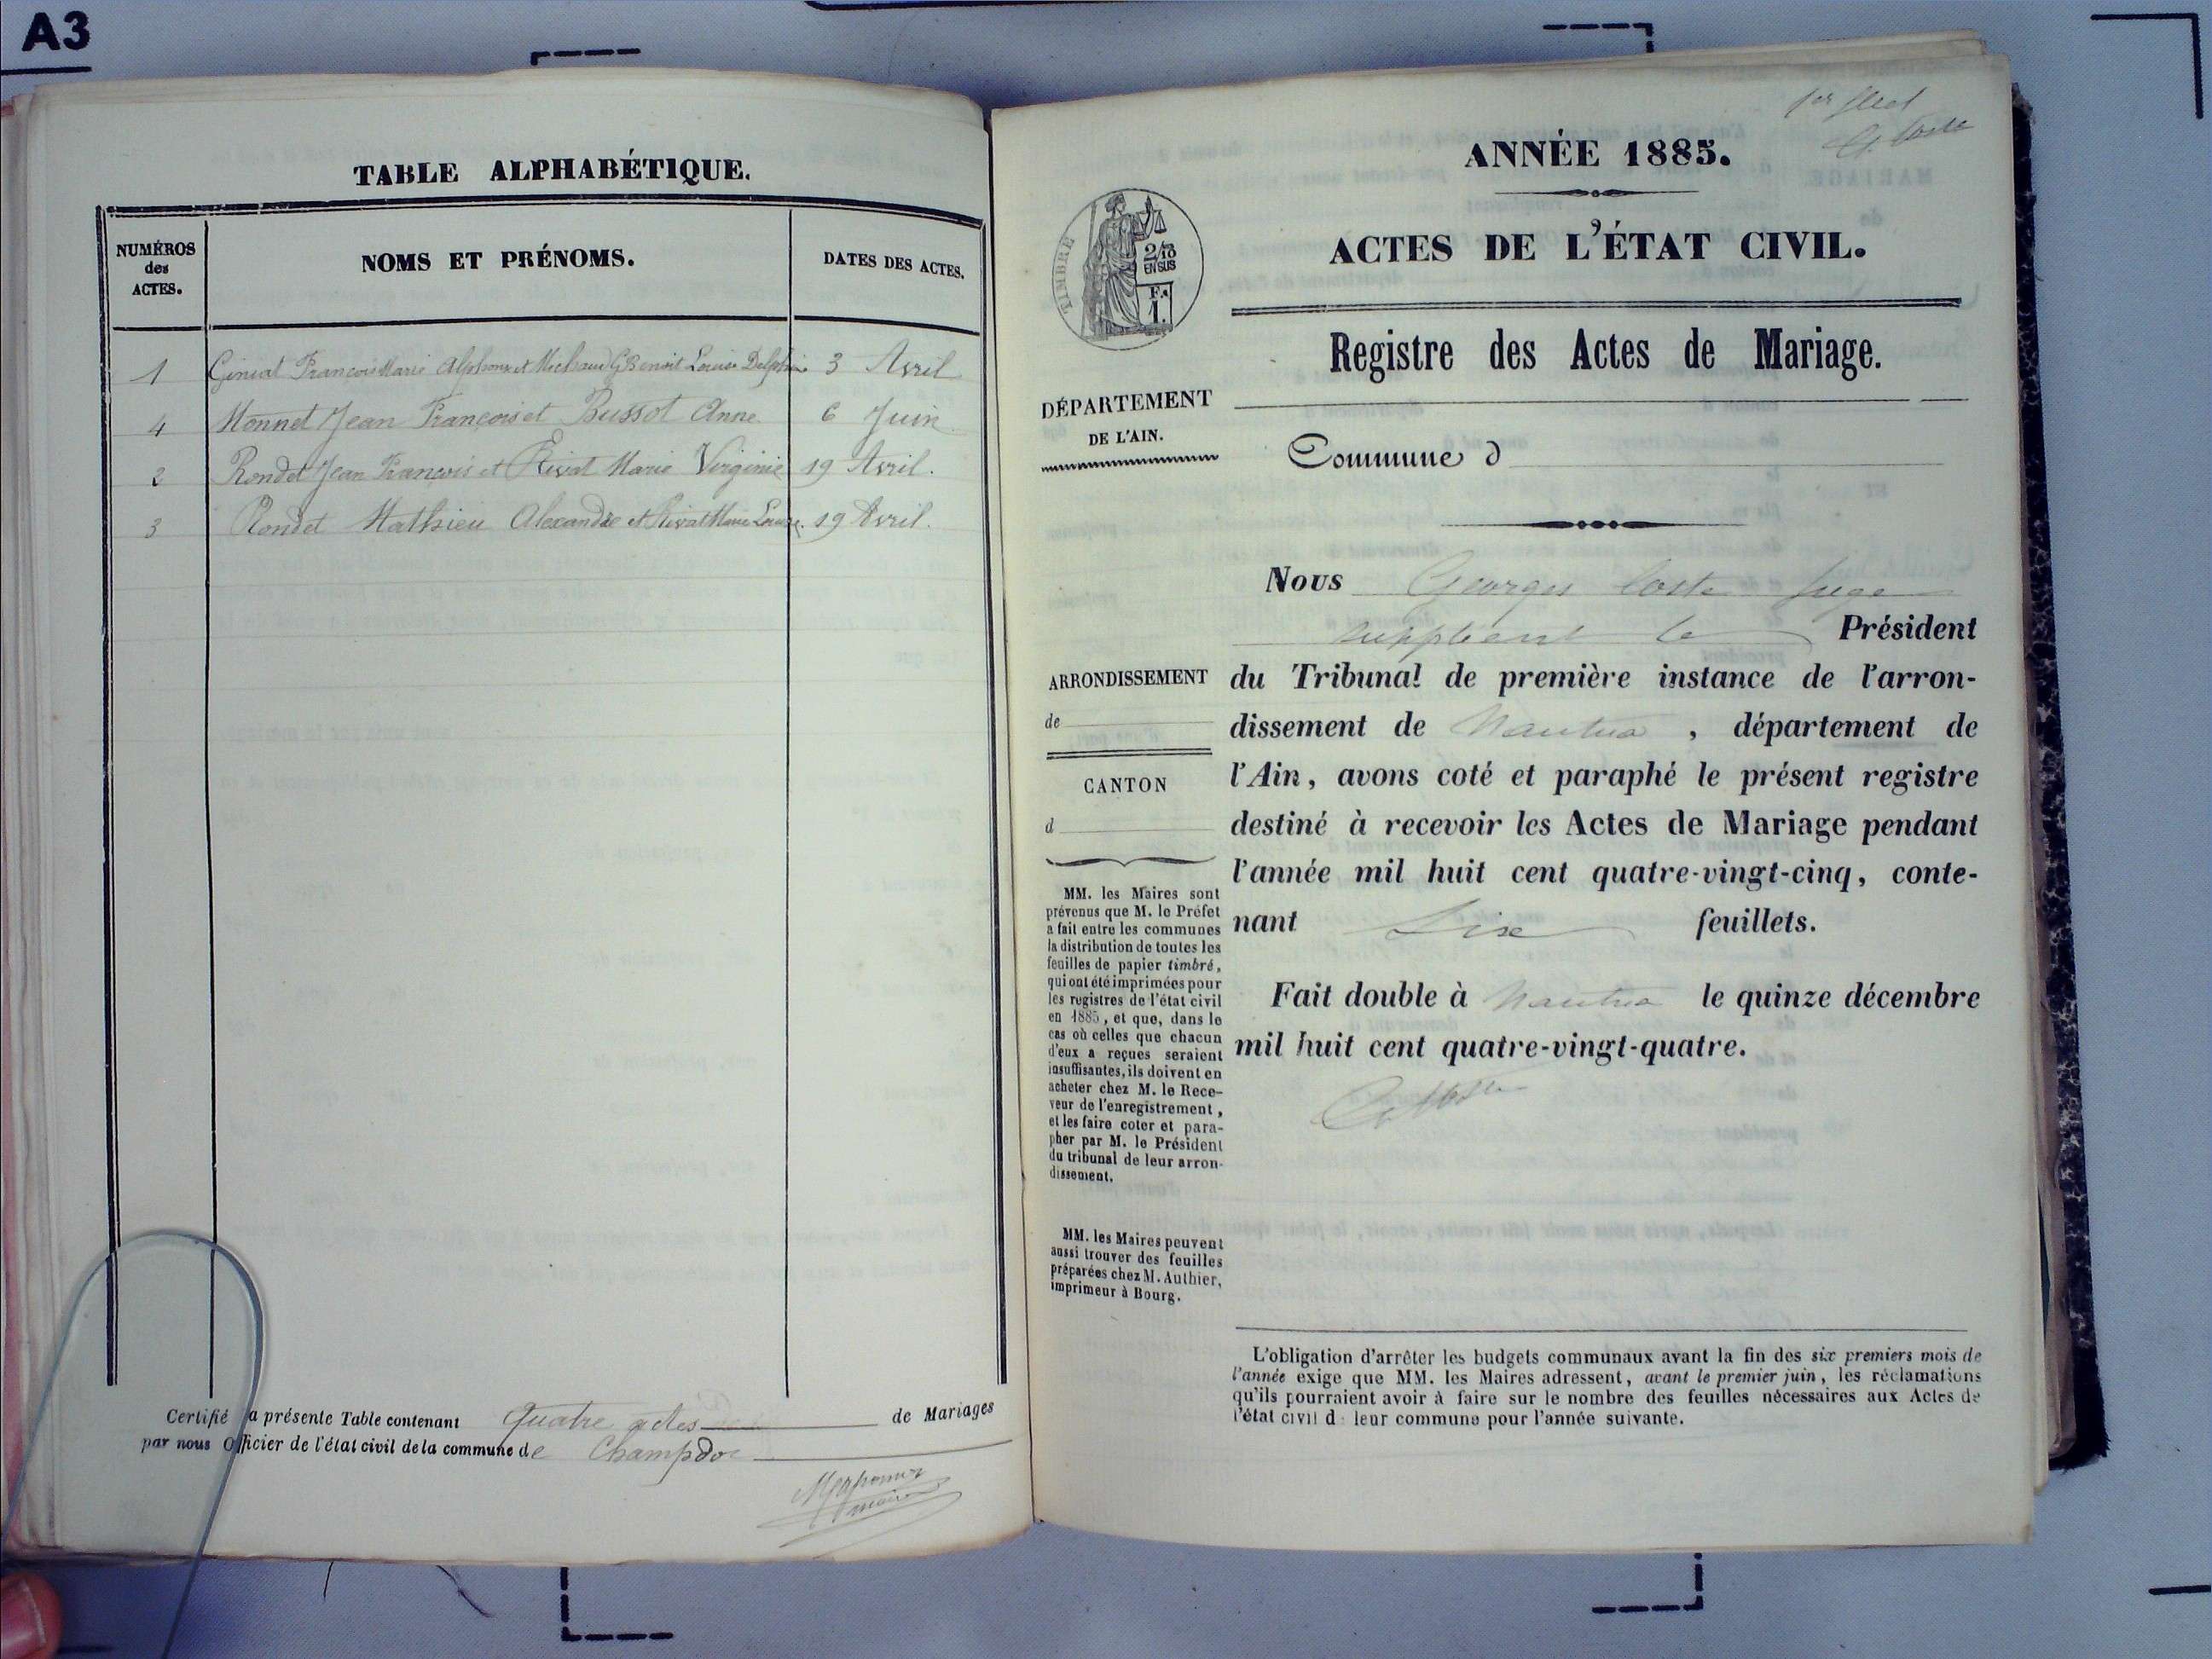 A3
TABLE ALPHABÉTIQUE.
NUMÉROS
des
ACTES.
NOMS ET PRÉNOMS.
DATES DES ACTES.
1 Giniat François Marie Alphonse et Michaud Benoit Louise Delphine 3 Avril
4 Monnet Jean François et Bussot Anne 6 Juin
2 Rondet Jean François et Rivat Marie Virginie 19 Avril.
3 Rondet Mathieu Alexandre et Rivat Marie Louise. 19 Avril.
Certifié la présente Table contenant Quatre actes de Mariages
par nous Officier de l'état civil de la commune de Champdor
maire
1er feuillet
G. Coste
ANNÉE 1885.
ACTES DE L'ÉTAT CIVIL.
TIMBRE
2/10
EN SUS
F.
1.
Registre des Actes de Mariage.
DÉPARTEMENT
DE L'AIN.
Commune d
Nous Georges Coste juge
suppléant le Président
du Tribunal de première instance de l'arron-
dissement de Nantua, département de
l'Ain, avons coté et paraphé le présent registre
destiné à recevoir les Actes de Mariage pendant
l'année mil huit cent quatre-vingt-cinq, conte-
nant Six feuillets.
Fait double à Nantua le quinze décembre
mil huit cent quatre-vingt-quatre.
G. Coste
ARRONDISSEMENT
de
CANTON
d
MM. les Maires sont
prévenus que M. le Préfet
a fait entre les communes
la distribution de toutes les
feuilles de papier timbré,
qui ont été imprimées pour
les registres de l'état civil
en 1885, et que, dans le
cas où celles que chacun
d'eux a reçues seraient
insuffisantes, ils doivent en
acheter chez M. le Rece-
veur de l'enregistrement,
et les faire coter et para-
pher par M. le Président
du tribunal de leur arron-
dissement.
MM. les Maires peuvent
aussi trouver des feuilles
préparées chez M. Authier,
imprimeur à Bourg.
L'obligation d'arrêter les budgets communaux avant la fin des six premiers mois de
l'année exige que MM. les Maires adressent, avant le premier juin, les réclamations
qu'ils pourraient avoir à faire sur le nombre des feuilles nécessaires aux Actes de
l'état civil d leur commune pour l'année suivante.